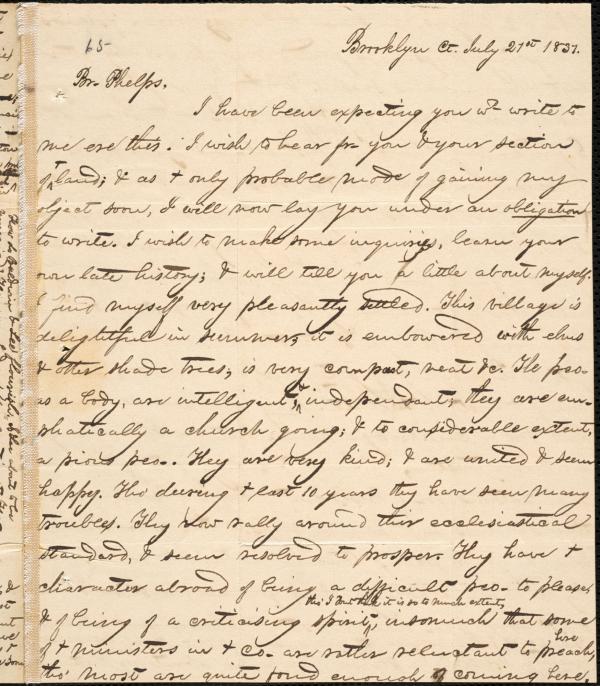 65-
Brooklyn Ct. July 21st 1837.
Br. Phelps.
I have been expecting you wd write to
me ere this. I wish to hear fr you & your section
of + land; & as + only probable mode of gaining my
object soon, I will now lay you under an obligation
to write. I wish to make some inquiries, learn your
own late history; & will tell you a little about myself.
I find myself very pleasantly settled. This village is
delightful in summer; it is embowered with elms
& other shade trees; is very compact, neat &c. The peo-
as a body, are intelligent, & independant; they are em-
phatically a church going; & to considerable extent,
a pious peo-. They are very kind; & are united & seem
happy. Tho during + last 10 years they have seen many
troubles. They now rally around their ecclesiastical
standard, & seem resolved to prosper. They have +
character abroad of being a difficult peo- to please;
tho' I think it is so to much extent,
& of being of a criticising spirit, insomuch that some
of + ministers in + co- are rather reluctant to preach here,
tho' most are quite fond enough of coming here.